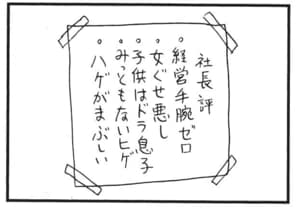 社長評
・経営手腕ゼロ
・女ぐせ悪し
・子供はドラ息子
・みっともないヒゲ
・ハゲがまぶしい